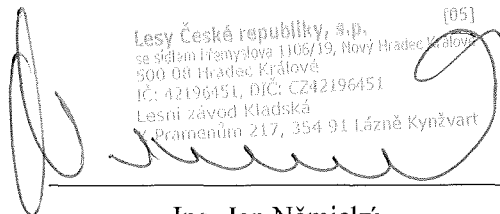 [05]
Lesy České republiky, s.p.
se sídlem Přemyslova 1106/19, Nový Hradec Králové
500 08 Hradec Králové
IČ: 42196451, DIČ: CZ42196451
Lesní závod Kladská
K Pramenům 217, 354 91 Lázně Kynžvart
Ing. Jan Němický